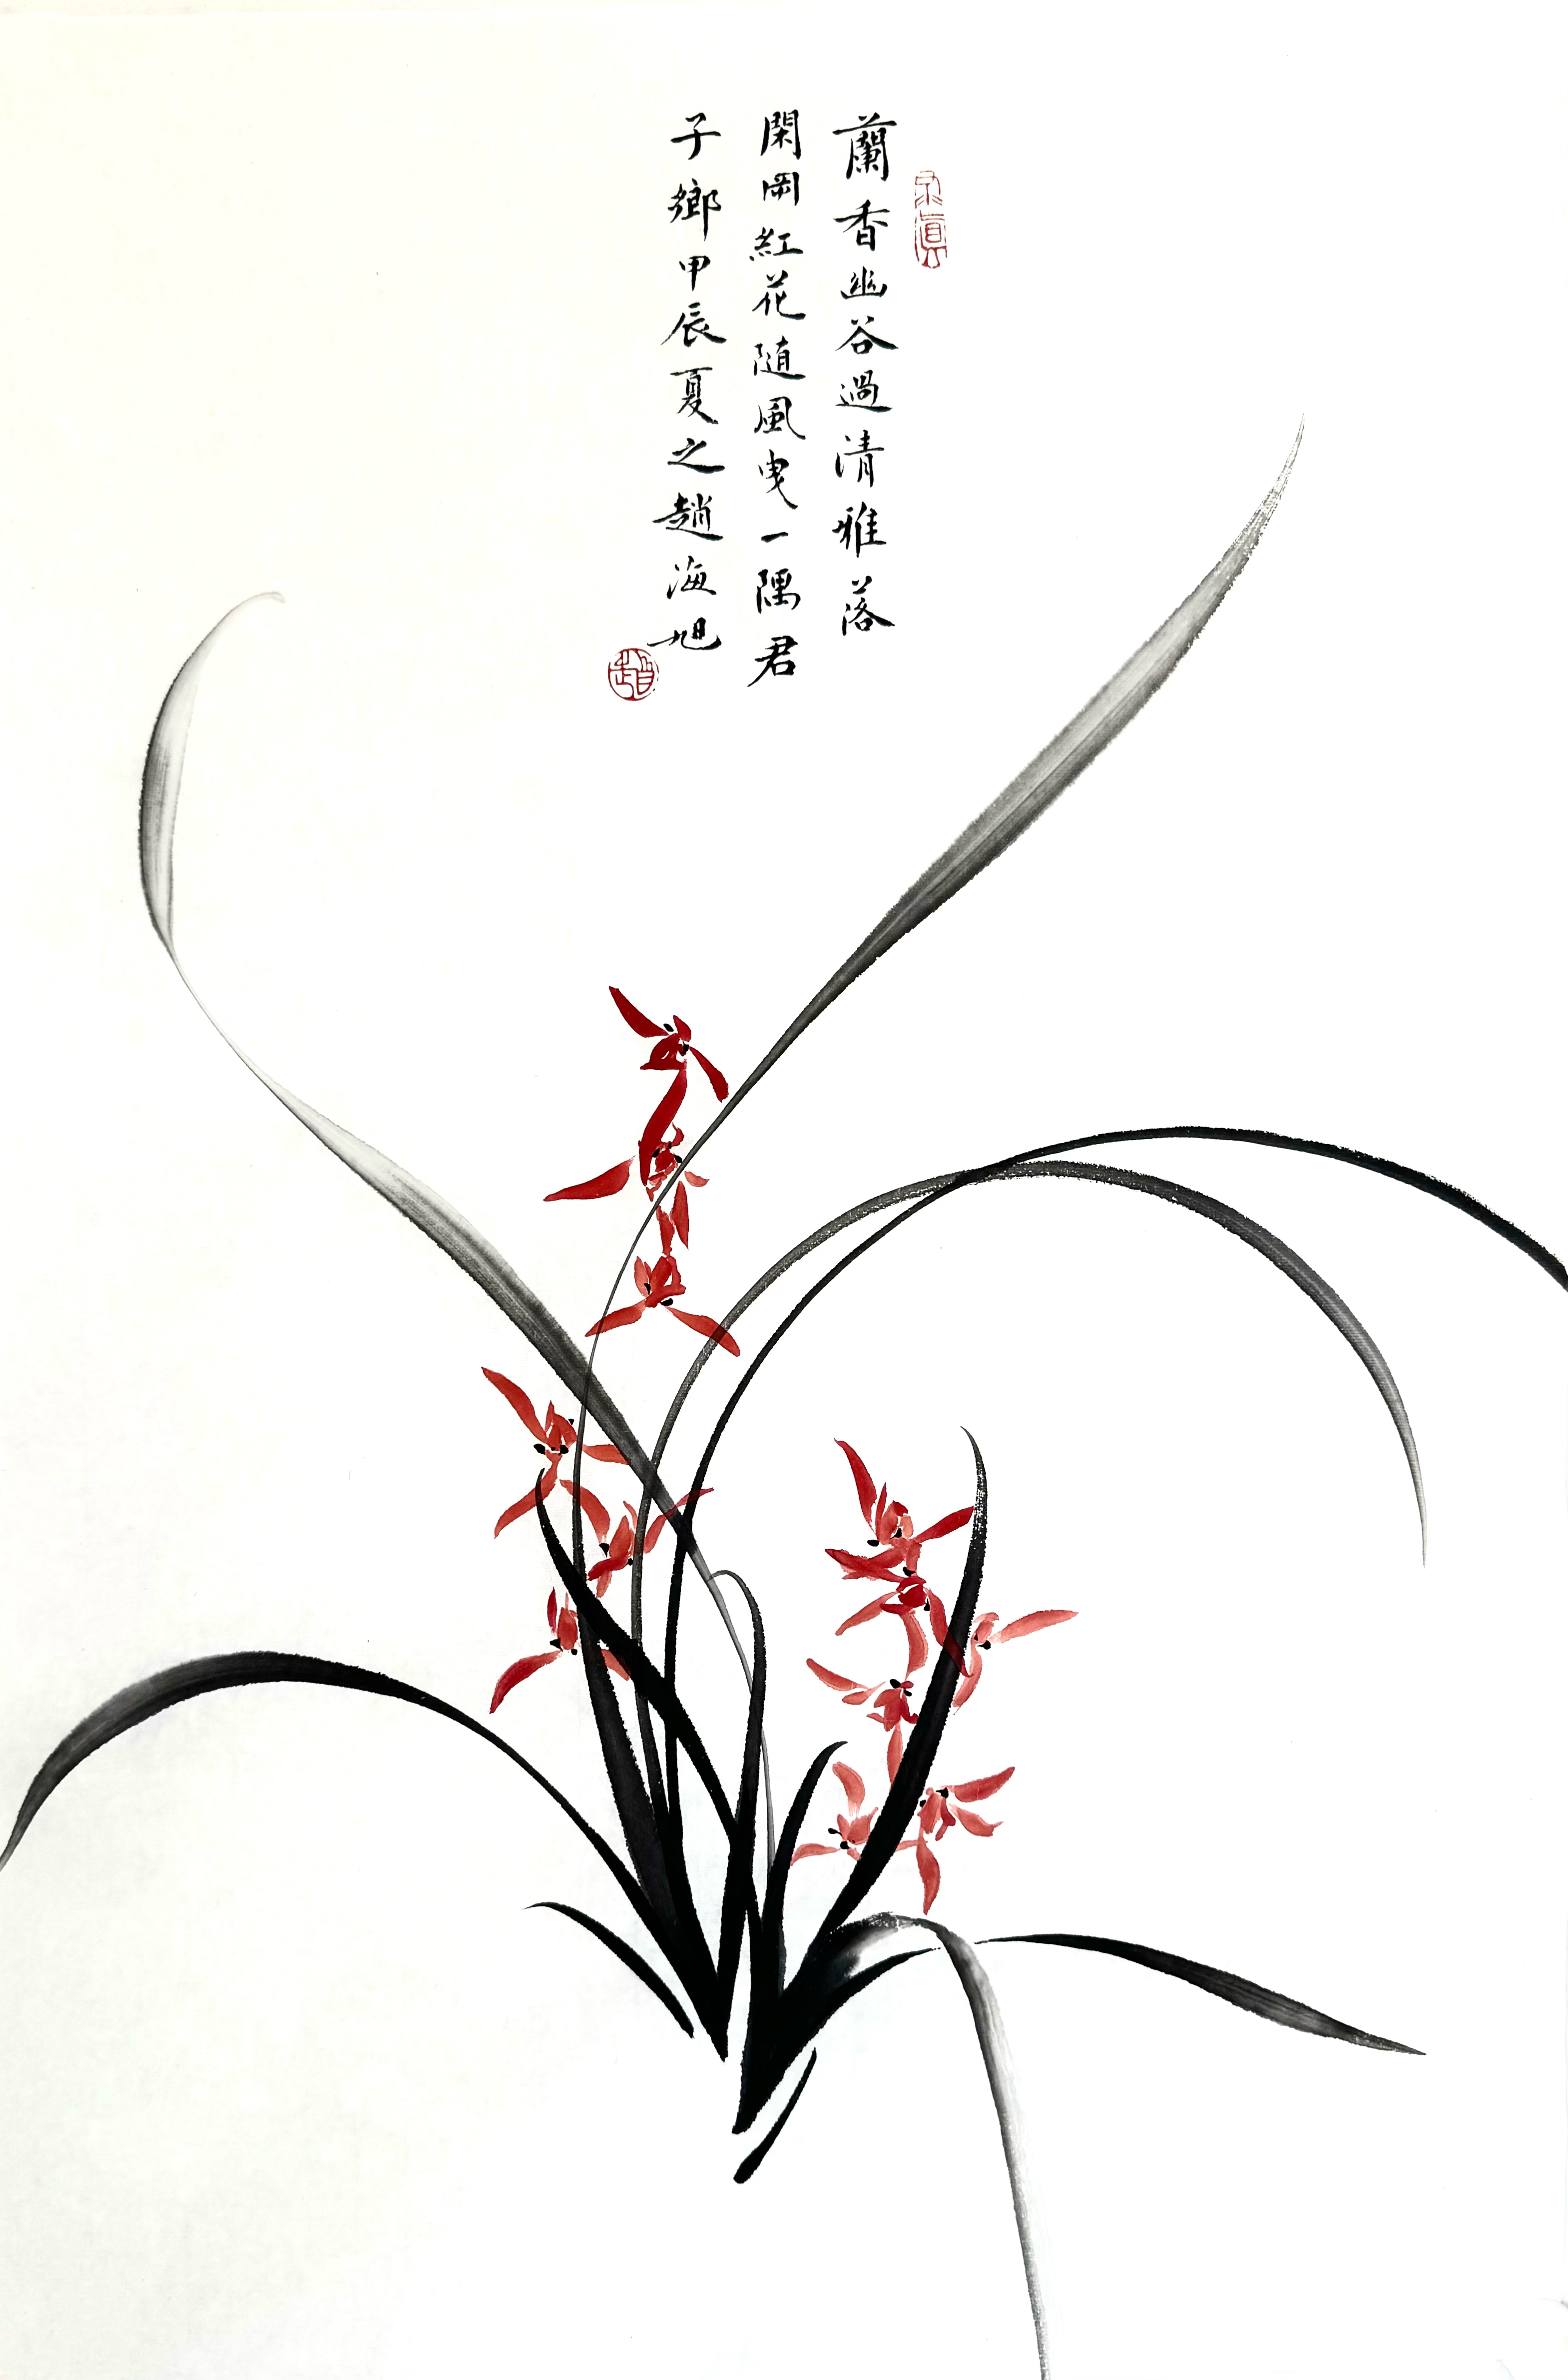 蘭香幽谷過清雅落
閑岡紅花隨風曳一隅君
子鄉甲辰夏之趙海旭
趙